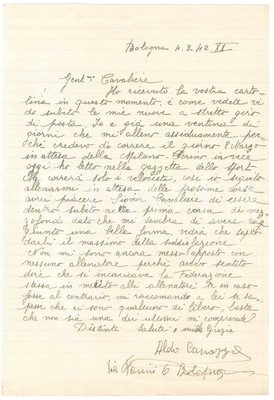 Bologna 4.2.42 XX
Gent.mo Cavaliere
Ho ricevuto la vostra carto-
lina in questo momento, e come vedete vi
do subito le mie nuove a stretto giro
di posta. Io è già una ventina di
giorni che mi alleno assiduamente per-
ché credevo di correre il giorno 1 Marzo
in attesa della Milano-Torino invece
oggi ho letto nella gazzetta dello Sport
che correrà solo i velocisti, così io seguito
allenarmi in attesa delle prossime corse
avrei piacere Signor Cavaliere di essere
dentro subito nella prima corsa di
dato che mi sembra di avere
giunto una bella forma, vedrà che saprò
darli il massimo della soddisfazione.
Non mi sono ancora messo apposto con
nessuno allenatore perché avevo sentito
dire che si incaricava la Federazione
stessa in merito alli allenatori. Se in caso
fosse al contrario, mi raccomando a lei se sa-
pesse che ci sono qualcuno di libero, basta
che non sia uno dei ultimi mi comprende?
Distinti Saluti e mille Grazie
Aldo
Via Bologna